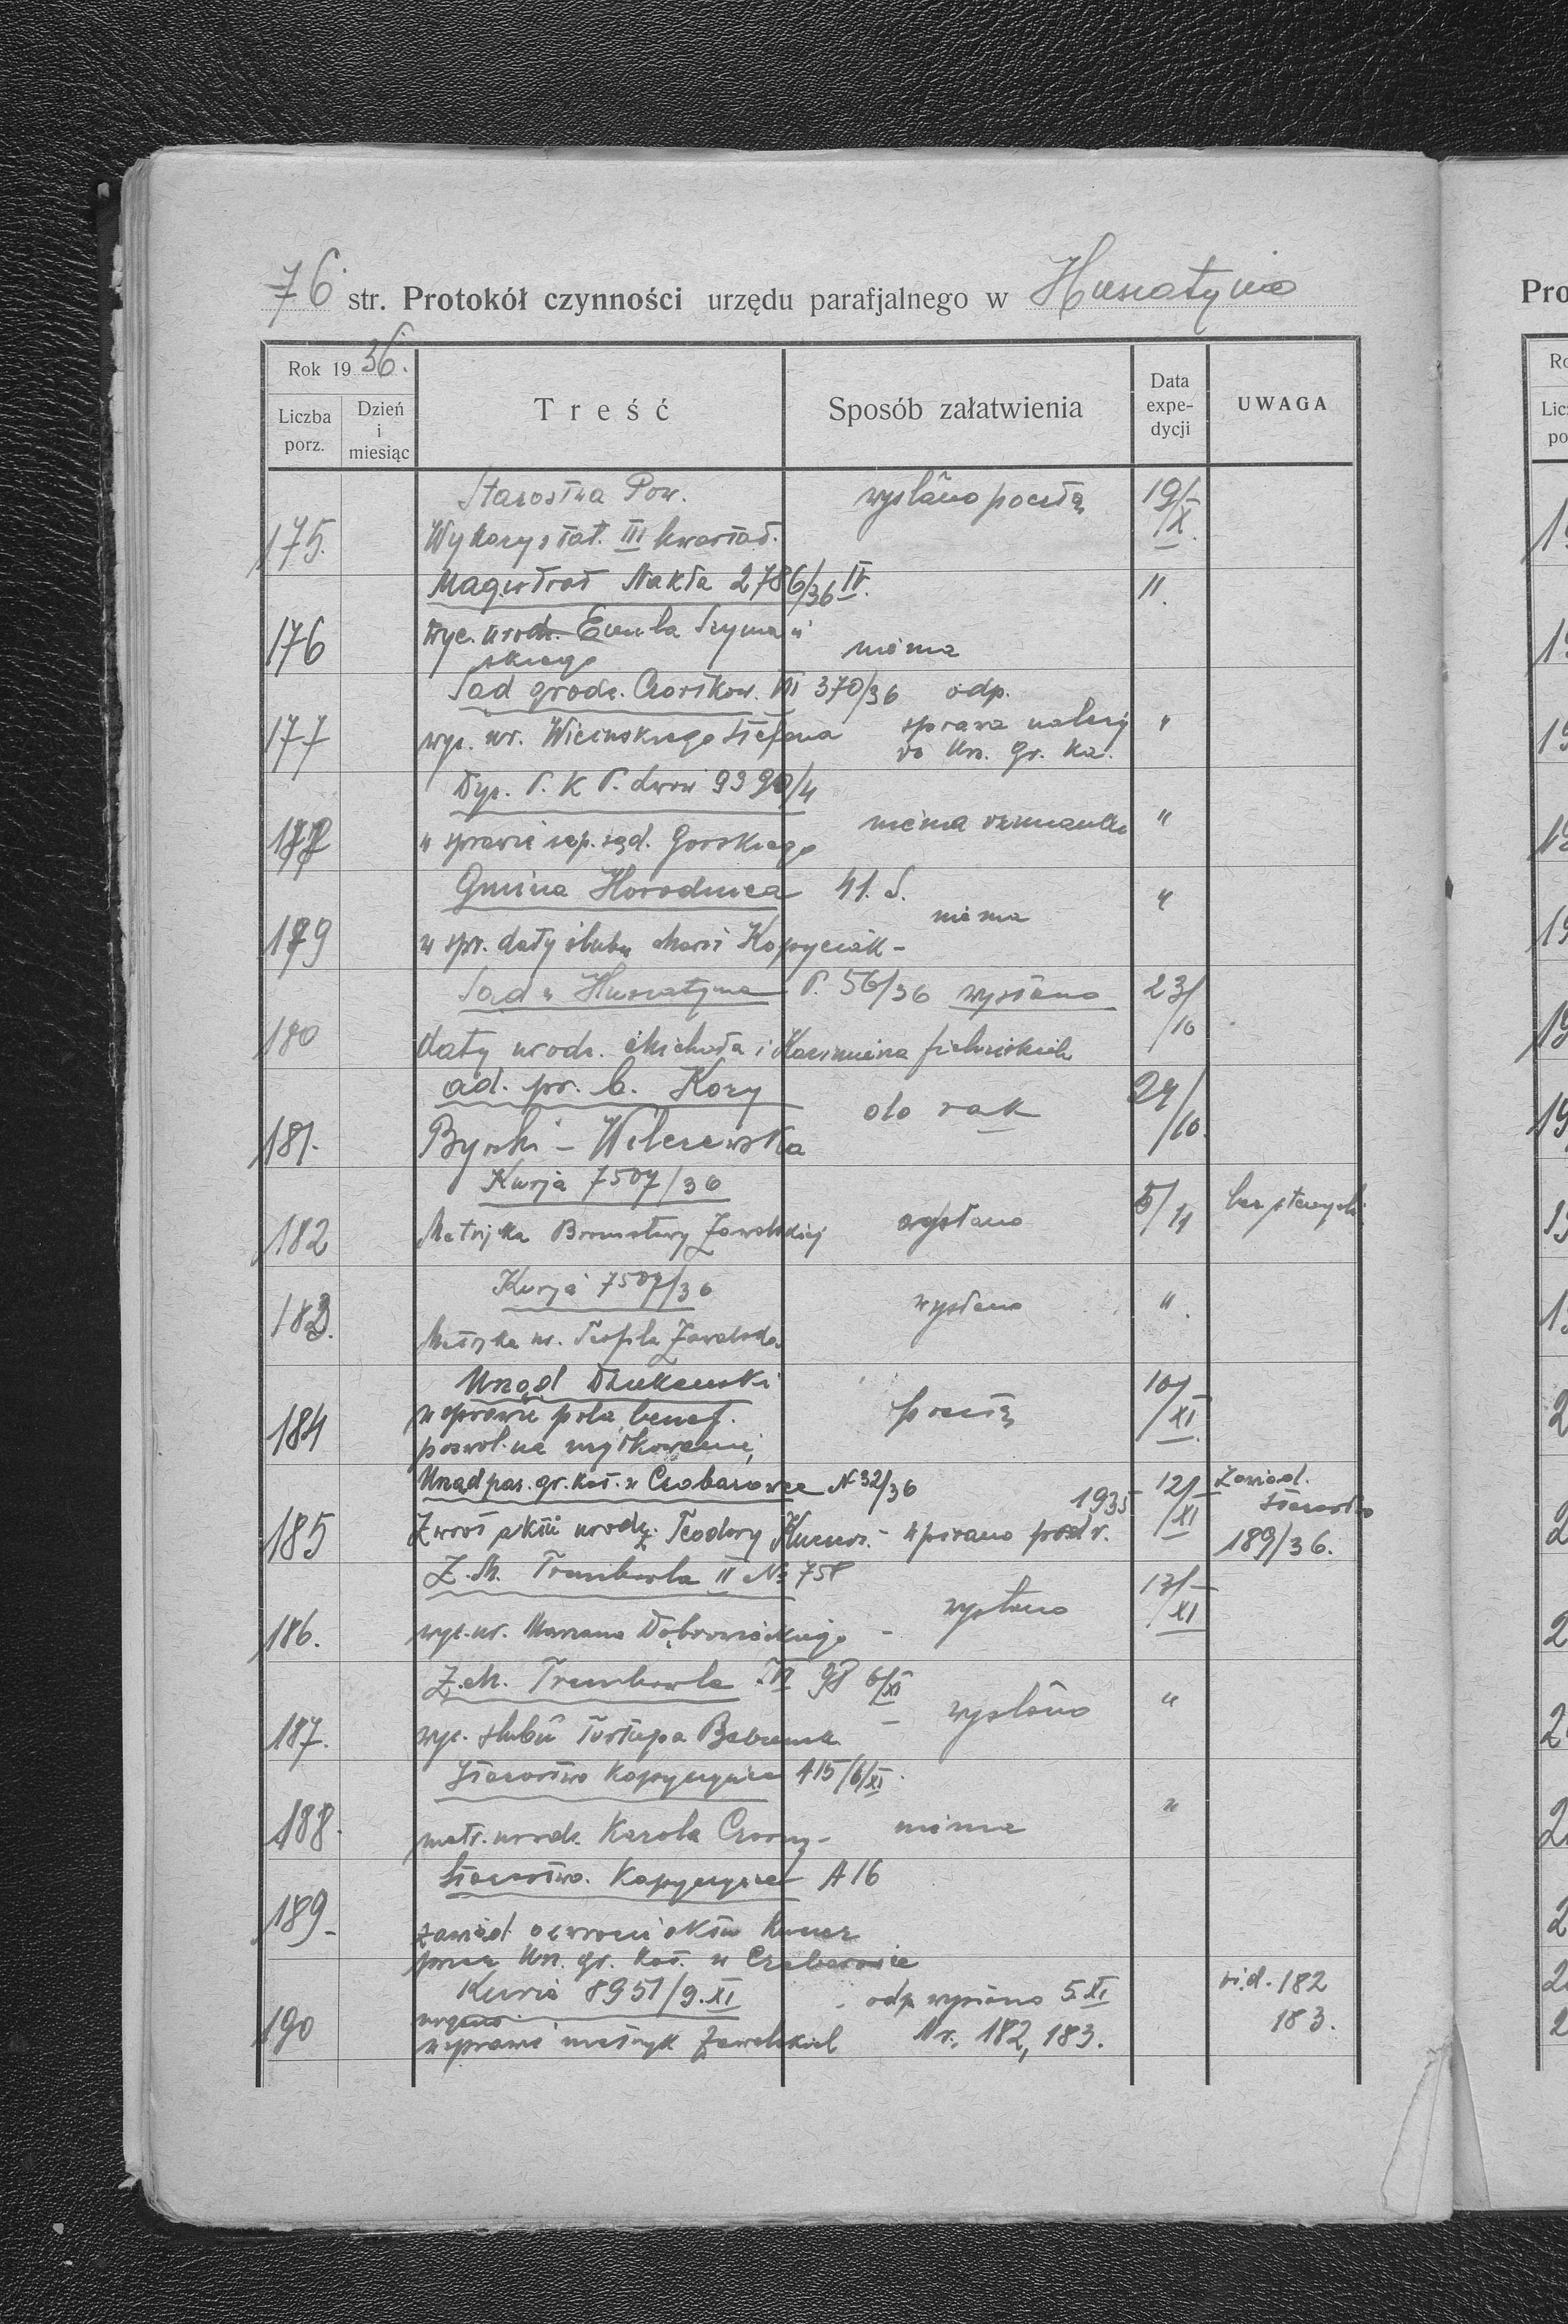 76 str. Protokół czynności urzędu parafjalnego w Husiatynie
Rok 1936.
Liczba porz.
Dzień i miesiąc
Treść
Sposób załatwienia
Data expedycji
UWAGA
Starostwa Pow. wysłano pocztą 19/X
175. Wykazy stat. III kwartał.
Magistrat Nakła 2786/36 IV. 11.
176 wyc. urodz. Emila Szymań
skiego niema
Sąd grodz. Czortków. VII 370/36 odp.
177 wyc. ur. Wicińskiego Stefana sprawa należy "
do Urz. gr. ka.
Dyr. P. K. P. Lwów 9390/4
178 w sprawie sąd. Gorskiego niema "
Gmina Horodnica 41. S. "
niema
179 w spr. daty ślubu Marii Kopyciak -
Sąd w Husiatynie P. 56/36 wysłano 23/10
180 daty urodz. Michała i Kazimierza
ad. pr. b. Kozy 27/10.
do rąk
181. Byrski - Wilczewska
Kurja 7507/36
182 Metryka Bronisławy Zawalskiej wysłano 5/11 bez stempli
Kurja 7507/36
183. Metryka ur. Teofila Zawalsk. wysłano ".
Urząd Dziekański 10/XI
184 w sprawie pola benef. pocztą
pozwol. na użytkowanie,
Urząd par. gr. kat. w Czabarówce N 32/36 12/XI Zawiad.
1935 Starostwo
185 Zwrot aktu urodz. Teodory Kucner. - wpisano pod r. 189/36.
Z. M. Trembowla II No 758 13/XI
186. wyc. ur. Mariana Dąbrowieckiego - wysłano
Z. M. Trembowla 98 6/XI
187. wyc. ślubu - wysłano "
Starostwo Kopyczyńce 415/6/XI.
188. metr. urodz. Karola Czorny - niema "
Starostwo. Kopyczyńce A 16
189. zawiad. o zwrocie aktu Kucner
przez Urz. gr. kat. w Czabarówce
Kuria 8951/9.XI odp. wysłano 5.XI vid. 182
190 w sprawie metryk Zawalskich Nr. 182, 183. 183.
Pro